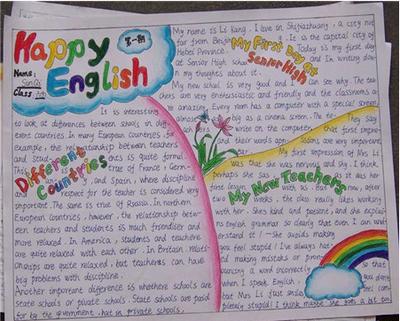 Happy English
第一期
Name:
Class
My First Day At Senior High
My name is Li Kang. I live in Shijiazhuang, a city not
far from Beijing. It is the capital city of
Hebei Province. Today is my first day
at Senior High school and I'm writing down
my thoughts about it.
My new school is very good and I can see why. The
are very enthusiastic and friendly and the classrooms a
amazing. Every room has a computer with a special screen,
almost as big as a cinema screen. The They say
write on the computer, that first impre
and their words are very important
My New Teachers
My first impression of Mrs. Li
was that she was nervous and shy. I think
perhaps she was as it was her
first lesson with us. But now, after
two weeks, the class really likes working
with her. She's kind and patient, and she explains
English grammar so clearly that even I can
understand it! - She avoids making
you feel stupid! I've always hated
making mistakes or pronoun
ouncing a word incorrectly
when I speak English,
but Mrs Li just smiles, so that you don't feel
completely stupid! I think maybe she goes a bit
Different Countries
It is interesting
to look at differences between schools in diff
erent countries. In many European countries, for
example, the relationship between teachers
and students is quite formal.
This is true of France, Germ-
any, and Spain, where discipline
and respect for the teacher is considered very
important. The same is true of Russia. In northern
European countries, however, the relationship betwe
een teachers and students is much friendlier and
more relaxed. In America, students and teachers
are quite relaxed with each other. In Britain, relati
onships are quite relaxed, but teachers can have
big problems with discipline.
Another important difference is whether schools are
state schools or private schools. State schools are paid
for by the government, but in private schools,